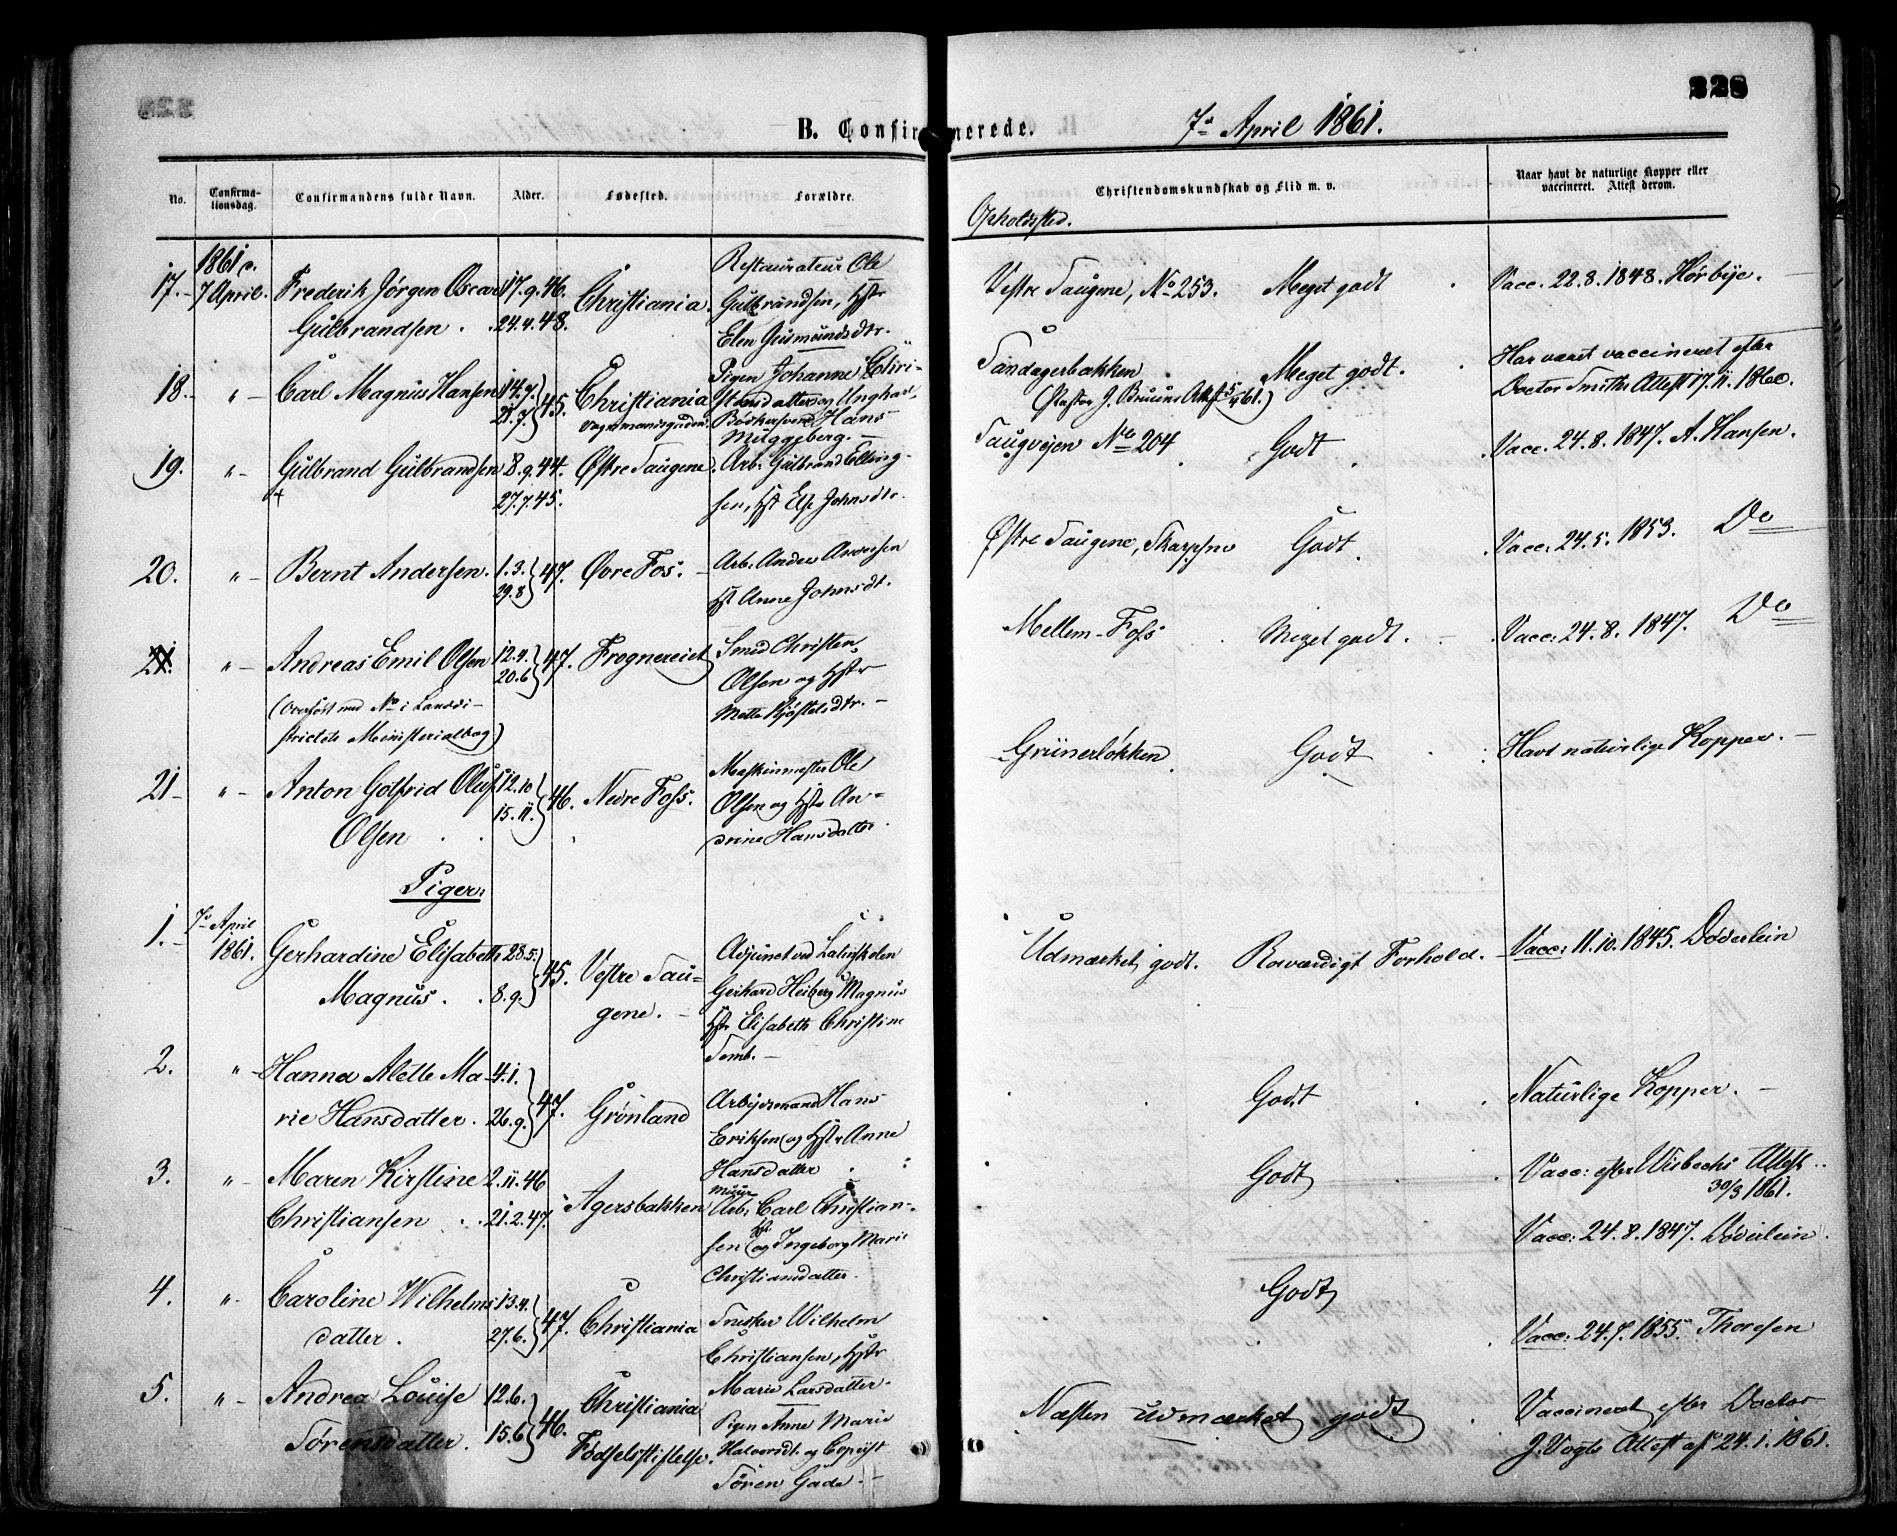 228
B. Confirmerede.
7de April 1861.
No.
Confirma-
tionsdag.
Confirmandens fulde Navn.
Alder.
Fødested.
Forældre.
Christendomskundskab og Flid m. v.
Naar havt de naturlige Kopper eller
vaccineret. Attest derom.
Opholdssted.
17. 1861 d. 7 April. Frederik Jørgen Oscar
Gulbrandsen
17.9.46.
24.4.48.
Christiania.
Restaurateur Ole
Gulbrandsen, Hstr
Elen Gusmundsdtr.
Vestre Saugene, No 253. Meget godt Vacc. 22.8.1848. Hørbye.
18. " Carl Magnus Hansen
14.7.
21.7. } 45.
Christiania
Vognmandsgaden.
Pigen Johanne Chri-
stensdatter og Ungkarl,
Bødkersvend Hans
Muggeberg.
Sandagerbakken
(Pastor J. Bruuns Attest 5/4 61.)
Meget godt.
Har været vaccineret efter
Doctor Smiths Attest 17.11.1860.
19. " Gulbrand Gulbrandsen
8.9.44.
27.7.45.
Østre Saugene.
Arb. Gulbrand Elling-
sen, Hst Else Johnsdtr.
Saugveien No 204 Godt Vacc. 24.8.1847. A. Hansen.
20. " Bernt Andersen.
1.3.
29.8 } 47.
Øvre Fos.
Arb. Anders Andersen
Hst Anne Johnsdt.
Østre Saugene, Skarpsno Godt. Vacc. 24.5.1853. Do
21. " Andreas Emil Olsen
(Overført med No i Landdi-
strictets Ministerialbog)
12.4.
20.6 } 47.
Frognereiet
Smed Christen
Olsen og Hstr
Mette Kjøstelsdtr.
Mellem-Foss Meget godt. Vacc. 24.8.1847. Do
21 " Anton Gotfrid Oluf
Olsen
12.10
15.11. } 46.
Nedre Foss.
Maskinmester Ole
Olsen og Hstr An-
drine Hansdatter
Grünerløkken Godt Havt naturlige Kopper.
Piger.
1. 7de April
1861.
Gerhardine Elisabeth
Magnus.
28.5.
8.9. } 45.
Vestre Sau-
gene.
Adjunct ved Latinskolen
Gerhard Heiberg Magnus
Hstr Elisabeth Christine
Tomb.
Udmærket godt. Roesværdigt Forhold. Vacc: 11.10.1845. Døderlein
2. " Hanna Alette Ma-
rie Hansdatter.
4.1.
26.9. } 47.
Grønland
Arbeidsmand Hans
Eriksen og Hstr Anne
Hansdatter
Godt Naturlige Kopper.
3. " Maren Kirstine
Christiansen
2.11.46
21.2.47.
Agersbakken
Muur
Arb. Carl Christian-
sen og Hst Ingeborg Marie
Christiansdatter.
Godt Vacc: efter Wisbechs Attest
30/3 1861.
Vacc: 24.8.1847. Døderlein.
4. " Caroline Wilhelms
datter.
13.4.
27.6. } 47.
Christiania
Snedker Wilhelm
Christiansen, Hstr
Marie Larsdatter.
Godt
Vacc: 24.7.1855. Thoresen
5. " Andrea Louise
Sørensdatter.
12.6.
15.6 } 46.
Christiania
Fødselsstiftelse.
Pigen Anne Marie
Halvorsdt. og Copiist
Søren Gade.
Næsten udmærket godt
Vaccineret efter Doctor
J. Vogts Attest af 24.1.1861.